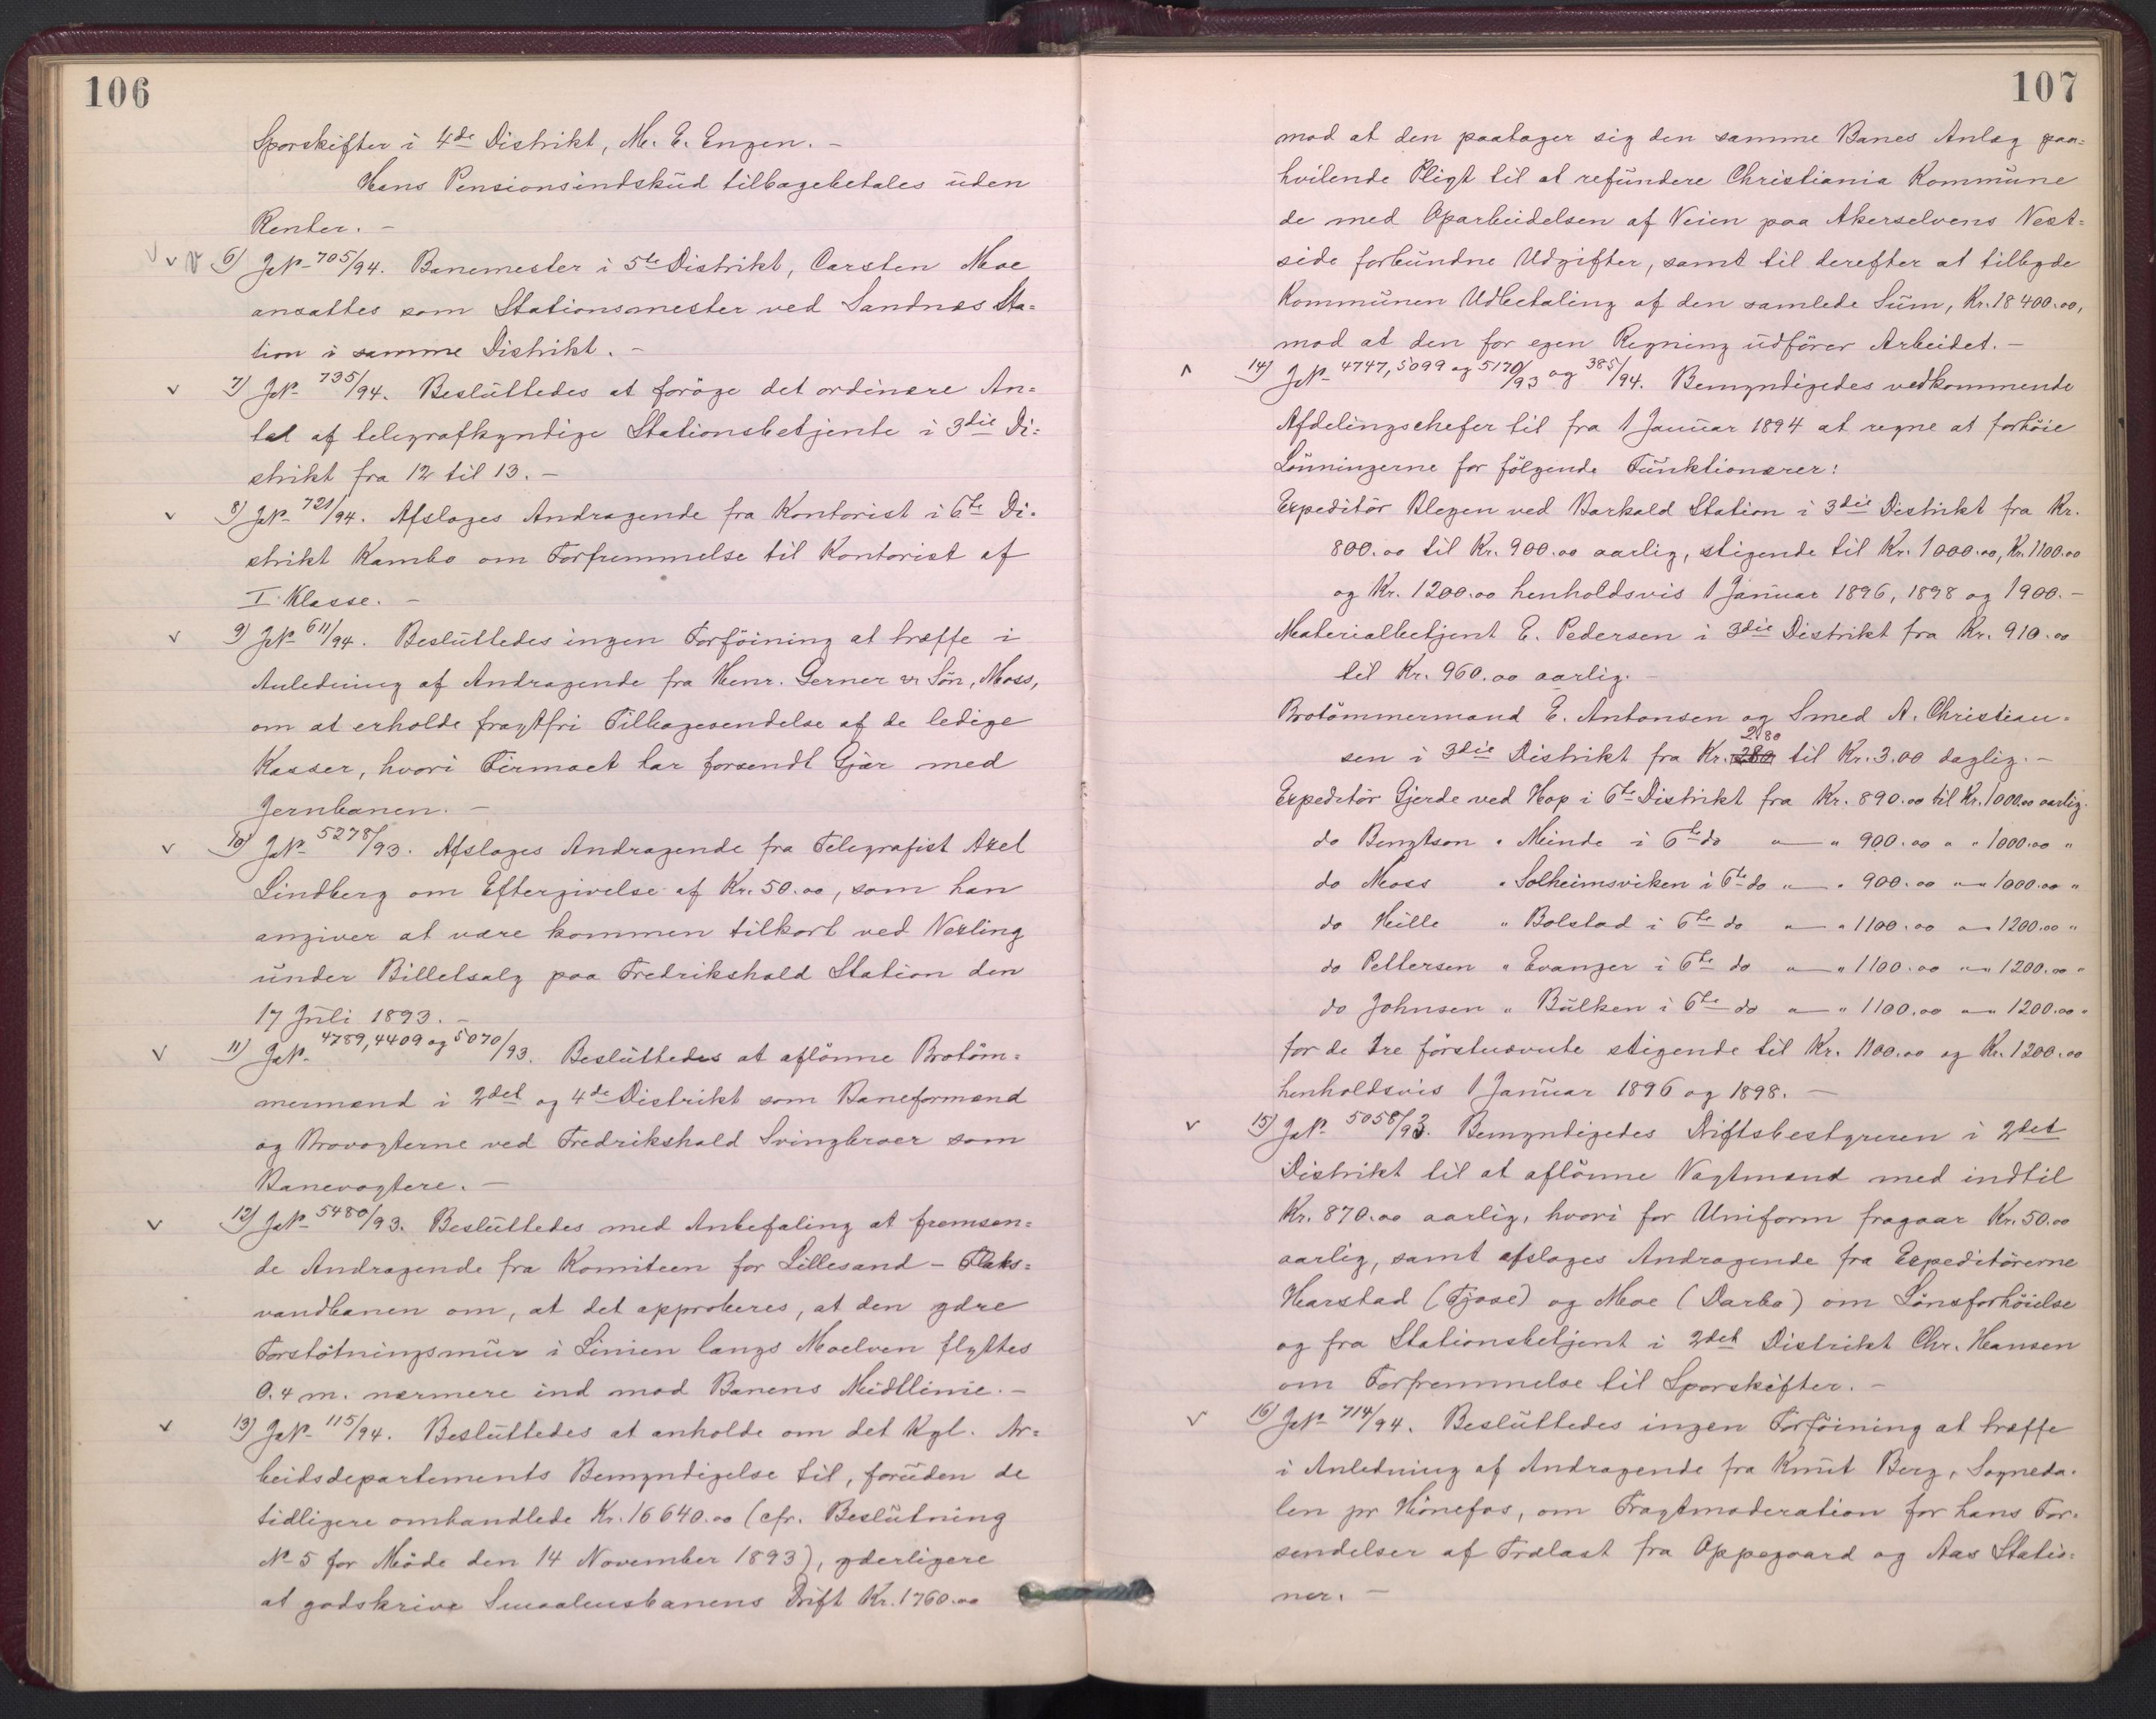 106
Sporskifter i 4de Distrikt, M. E. Engen. –
Hans Pensionsindskud tilbagebetales uden
Renter. –
6) JN- 705/94. Banemester i 5te Distrikt, Carsten Moe
ansattes som Stationsmester ved Sandnes Sta=
tion i samme Distrikt. –
7) JN- 735/94. Besluttedes at forøge det ordinære An=
tal af telegrafkyndige Stationsbetjente i 3die Di=
strikt fra 12 til 13. –
8) JN- 721/94. Afsloges Andragende fra Kontorist i 6te Di=
strikt Kambo om Forfremmelse til Kontorist af
I Klasse. –
9) JN- 611/94. Besluttedes ingen Forføining at træffe i
Anledning af Andragende fra Henr. Gerner & Søn, Moss,
om at erholde fragtfri Tilbagesendelse af de ledige
Kasser, hvori Firmaet har forsendt Gjær med
Jernbanen. –
10) JN- 5278/93. Afsloges Andragende fra Telegrafist Axel
Lindberg om Eftergivelse af Kr. 50.00, som han
angiver at være kommen tilkort ved Vexling
under Billetsalg paa Fredrikshald Station den
17 Juli 1893. –
11) JN- 4789, 4409 og 5070/93. Besluttedes at aflønne Brotøm=
mermænd i 2det og 4de Distrikt som Baneformænd
og Brovogterne ved Fredrikshald Svingbroer som
Banevogtere. –
12) JN- 5480/93. Besluttedes med Anbefaling at fremsen=
de Andragende fra Komiteen for Lillesand – Flaks=
vandbanen om, at det approberes, at den ydre
Forstøtningsmur i Linien langs Moelven flyttes
0.4 m. nærmere ind mod Banens Midtlinie. –
13) JN- 115/94. Besluttedes at anholde om det Kgl. Ar=
beidsdepartements Bemyndigelse til, foruden de
tidligere omhandlede Kr. 16 640.00 (cfr. Beslutning
N- 5 for Møde den 14 November 1893), yderligere
at godskrive Smaalensbanens Drift Kr. 1760.00
107
mod at den paatager sig den samme Banes Anlæg paa=
hvilende Pligt til at refundere Christiania Kommune
de med Oparbeidelsen af Veien paa Akerselvens Vest=
side forbundne Udgifter, samt til derefter at tilbyde
Kommunen Udbetaling af den samlede Sum, Kr. 18 400.00,
mod at den for egen Regning udfører Arbeidet. –
14) JN- 4747, 5099 og 5170/93 og 385/94. Bemyndigedes vedkommende
Afdelingschefer til fra 1 Januar 1894 at regne at forhøie
Lønningerne for følgende Funktionærer:
Expeditør Blegen ved Barkald Station i 3die Distrikt fra Kr.
800.00 til Kr. 900.00 aarlig, stigende til Kr. 1000.00, Kr. 1100.00
og Kr. 1200.00 henholdsvis 1 Januar 1896, 1898 og 1900. –
Materialbetjent E. Pedersen i 3die Distrikt fra Kr. 910.00
til Kr. 960.00 aarlig. –
Brotømmermand E. Antonsen og Smed A. Christian=
sen i 3die Distrikt fra Kr. 280 2.80 til Kr. 3.00 daglig. –
Expeditør Gjerde ved Hop i 6te Distrikt fra Kr. 890.00 til Kr. 1000.00 aarlig.
do Bengtson " Minde i 6te do " — " 900.00 " " 1000.00 "
do Moss " Solheimsviken i 6te do " — " 900.00 " — " 1000.00 "
do Hille " Bolstad i 6te do " — " 1100.00 " — " 1200.00 "
do Pettersen " Evanger i 6te do " — " 1100.00 " — " 1200.00 "
do Johnsen " Bulken i 6te do " — " 1100.00 " — " 1200.00 "
for de tre førstnævnte stigende til Kr. 1100.00 og Kr. 1200.00
henholdsvis 1 Januar 1896 og 1898. –
15) JN- 5058/93. Bemyndigedes Driftsbestyreren i 2det
Distrikt til at aflønne Vagtmænd med indtil
Kr. 870.00 aarlig, hvori for Uniform fragaar Kr. 50.00
aarlig, samt afsloges Andragende fra Expeditørerne
Harstad (Tjose) og Moe (Darbo) om Lønsforhøielse
og fra Stationsbetjent i 2det Distrikt Chr. Hansen
om Forfremmelse til Sporskifter. –
16) JN- 714/94. Besluttedes ingen Forføining at træffe
i Anledning af Andragende fra Knut Berg, Sogneda=
len pr Hønefos, om Fragtmoderation for hans For=
sendelser af Trælast fra Oppegaard og Aas Statio=
ner. –